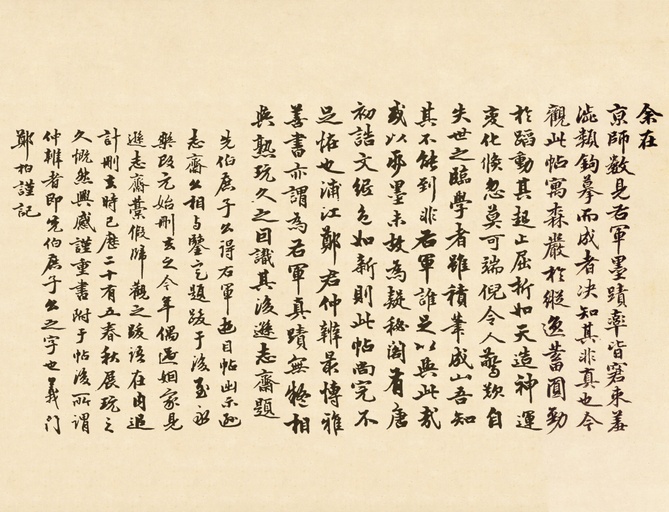 余在
京師數見右軍墨蹟率皆窘束羞
澁類鉤摹而成者決知其非真也今
觀此帖寓森嚴於縱逸蓄圓勁
於蹈動其起止屈折如天造神運
變化倏忽莫可端倪令人驚歎自
失世之臨學者雖積筆成山吾知
其不能到非右軍誰足以與此哉
或以豪墨未故為疑秘閣有唐
初誥文絹色如新則此帖尚完不
足怪也浦江鄭君仲辨最博雅
善書亦謂為右軍真蹟無疑相
與熟玩久之因識其後遜志齋題
先伯庶子公得右軍遊目帖出示遜
志齋公相與鑒定題跋于後至永
樂改元始刪去之今年偶過姻家見
遜志齋藁假歸觀之跋語在內追
計刪去時已歷二十有五春秋展玩之
久慨然興感謹重書附于帖後所謂
仲辨者即先伯庶子公之字也義門
鄭柏謹記